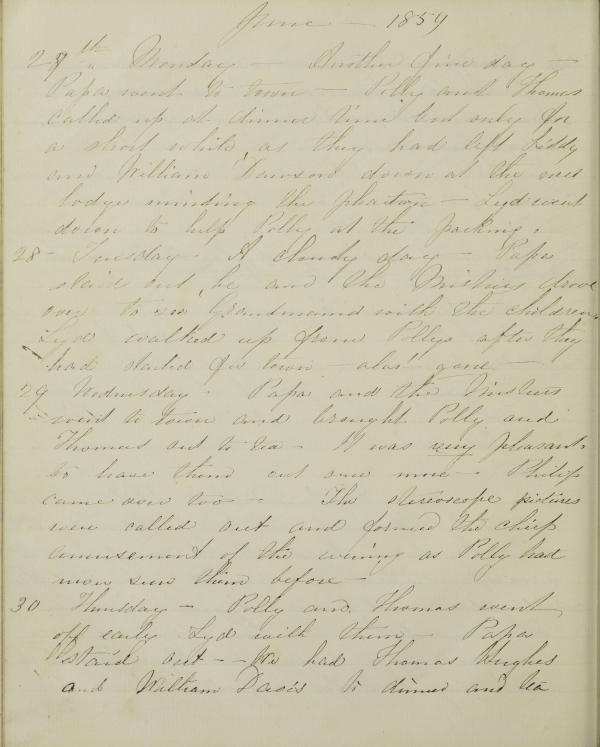 June — 1859
27th Monday — Another fine day —
Papa went to town — Polly and Thomas
called up at dinner time but only for
a short while, as they had left Liddy
and William Dawson down at the
lodge minding the phaeton — Lyd went
down to help Polly at the packing.
28 — Tuesday — A cloudy day — Papa
staid out, he and the Misties drove
over to see Grandmama with the children.
Lyd walked up from Pollys after they
had started for town — alas! gone —
29 Wednesday — Papa and the Misties
went to town and brought Polly and
Thomas out to tea — It was very pleasant
to have them out once more — Philip
came over too — The stereoscope pictures
were called out and formed the chief
amusement of the evening as Polly had
never seen them before —
30 Thursday — Polly and Thomas went
off early Lyd with them — Papa
staid out — We had Thomas Hughes
and William Davis to dinner and tea